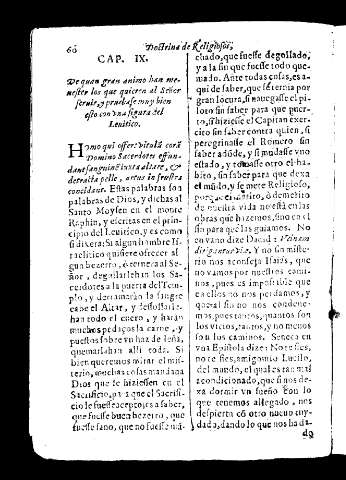 66
Doctrina de Religiosos,
CAP. IX.
De quan gran animo han me-
nester los que quieren al Señor
seruir, y pruebase muy bien
esto con vna figura del
Leuitico.
Homo qui offert vitulũ corã
Domino Sacerdotes
& in frusta
concidunt. Estas palabras son
palabras de Dios, y dichas al
Santo Moysen en el monte
Raphin, y escritas en el prin-
cipio del Leuitico, y es como
si dixera: Si algun hombre Is-
raelitico quisiere ofrecer al-
gun bezerro, ò cernera al Se-
ñor, degollarlehan los Sa-
cerdotes a la puerta del Tem-
plo, y derramaràn la sangre
cabe el Altar, y desollarle-
han todo el cuero, y haràn
muchos pedaços la carne, y
puestos sobre vn haz de leña,
quemarlahan alli toda. Si
bien queremos mirar el mis-
terio, muchas cosas mandaua
Dios que se hiziessen en el
Sacrificio, para que el Sacrifi-
cio le fuesse acepto; es a saber,
que fuesse buen bezerro, que
fuesse sano, que no fuesse mã-
chado, que fuesse degollado,
y a la fin que fuesse todo que-
mado. Ante todas cosas, es a-
qui de saber, que seria muy
gran locura, si nauegasse el pi-
loto sin saber para que puer-
to, si hiziesse el Capitan exer-
cito sin saber contra quien, si
peregrinasse el Romero sin
saber adõde, y si mudasse vno
estado, y tomasse otro el ha-
bito, sin saber para que dexa
el mũdo, y se mete Religioso,
porque el merito, ò demerito
de nuestra vida no està en las
obras que hazemos, sino en el
fin para que las guiamos. No
en vano dize Dauid: Vi
Y no sin miste-
rio nos aconseja Isaias, que
no vamos por nuestros cami-
nos, pues es impossible que
en ellos no nos perdamos, y
que al fin no nos condene-
mos, pues tantos, quantos son
los vicios, tantos, y no menos
son los caminos. Seneca en
vna Epistola dize: No te fies,
no te fies, amigo mio Lucilo,
del mundo, el qual es tan mal
acondicionado, que si nos de-
xa dormir vn sueño con lo
que tenemos allegado, nos
despierta cõ otro nueuo cuy-
dado, dando lo que nos ha da-
do